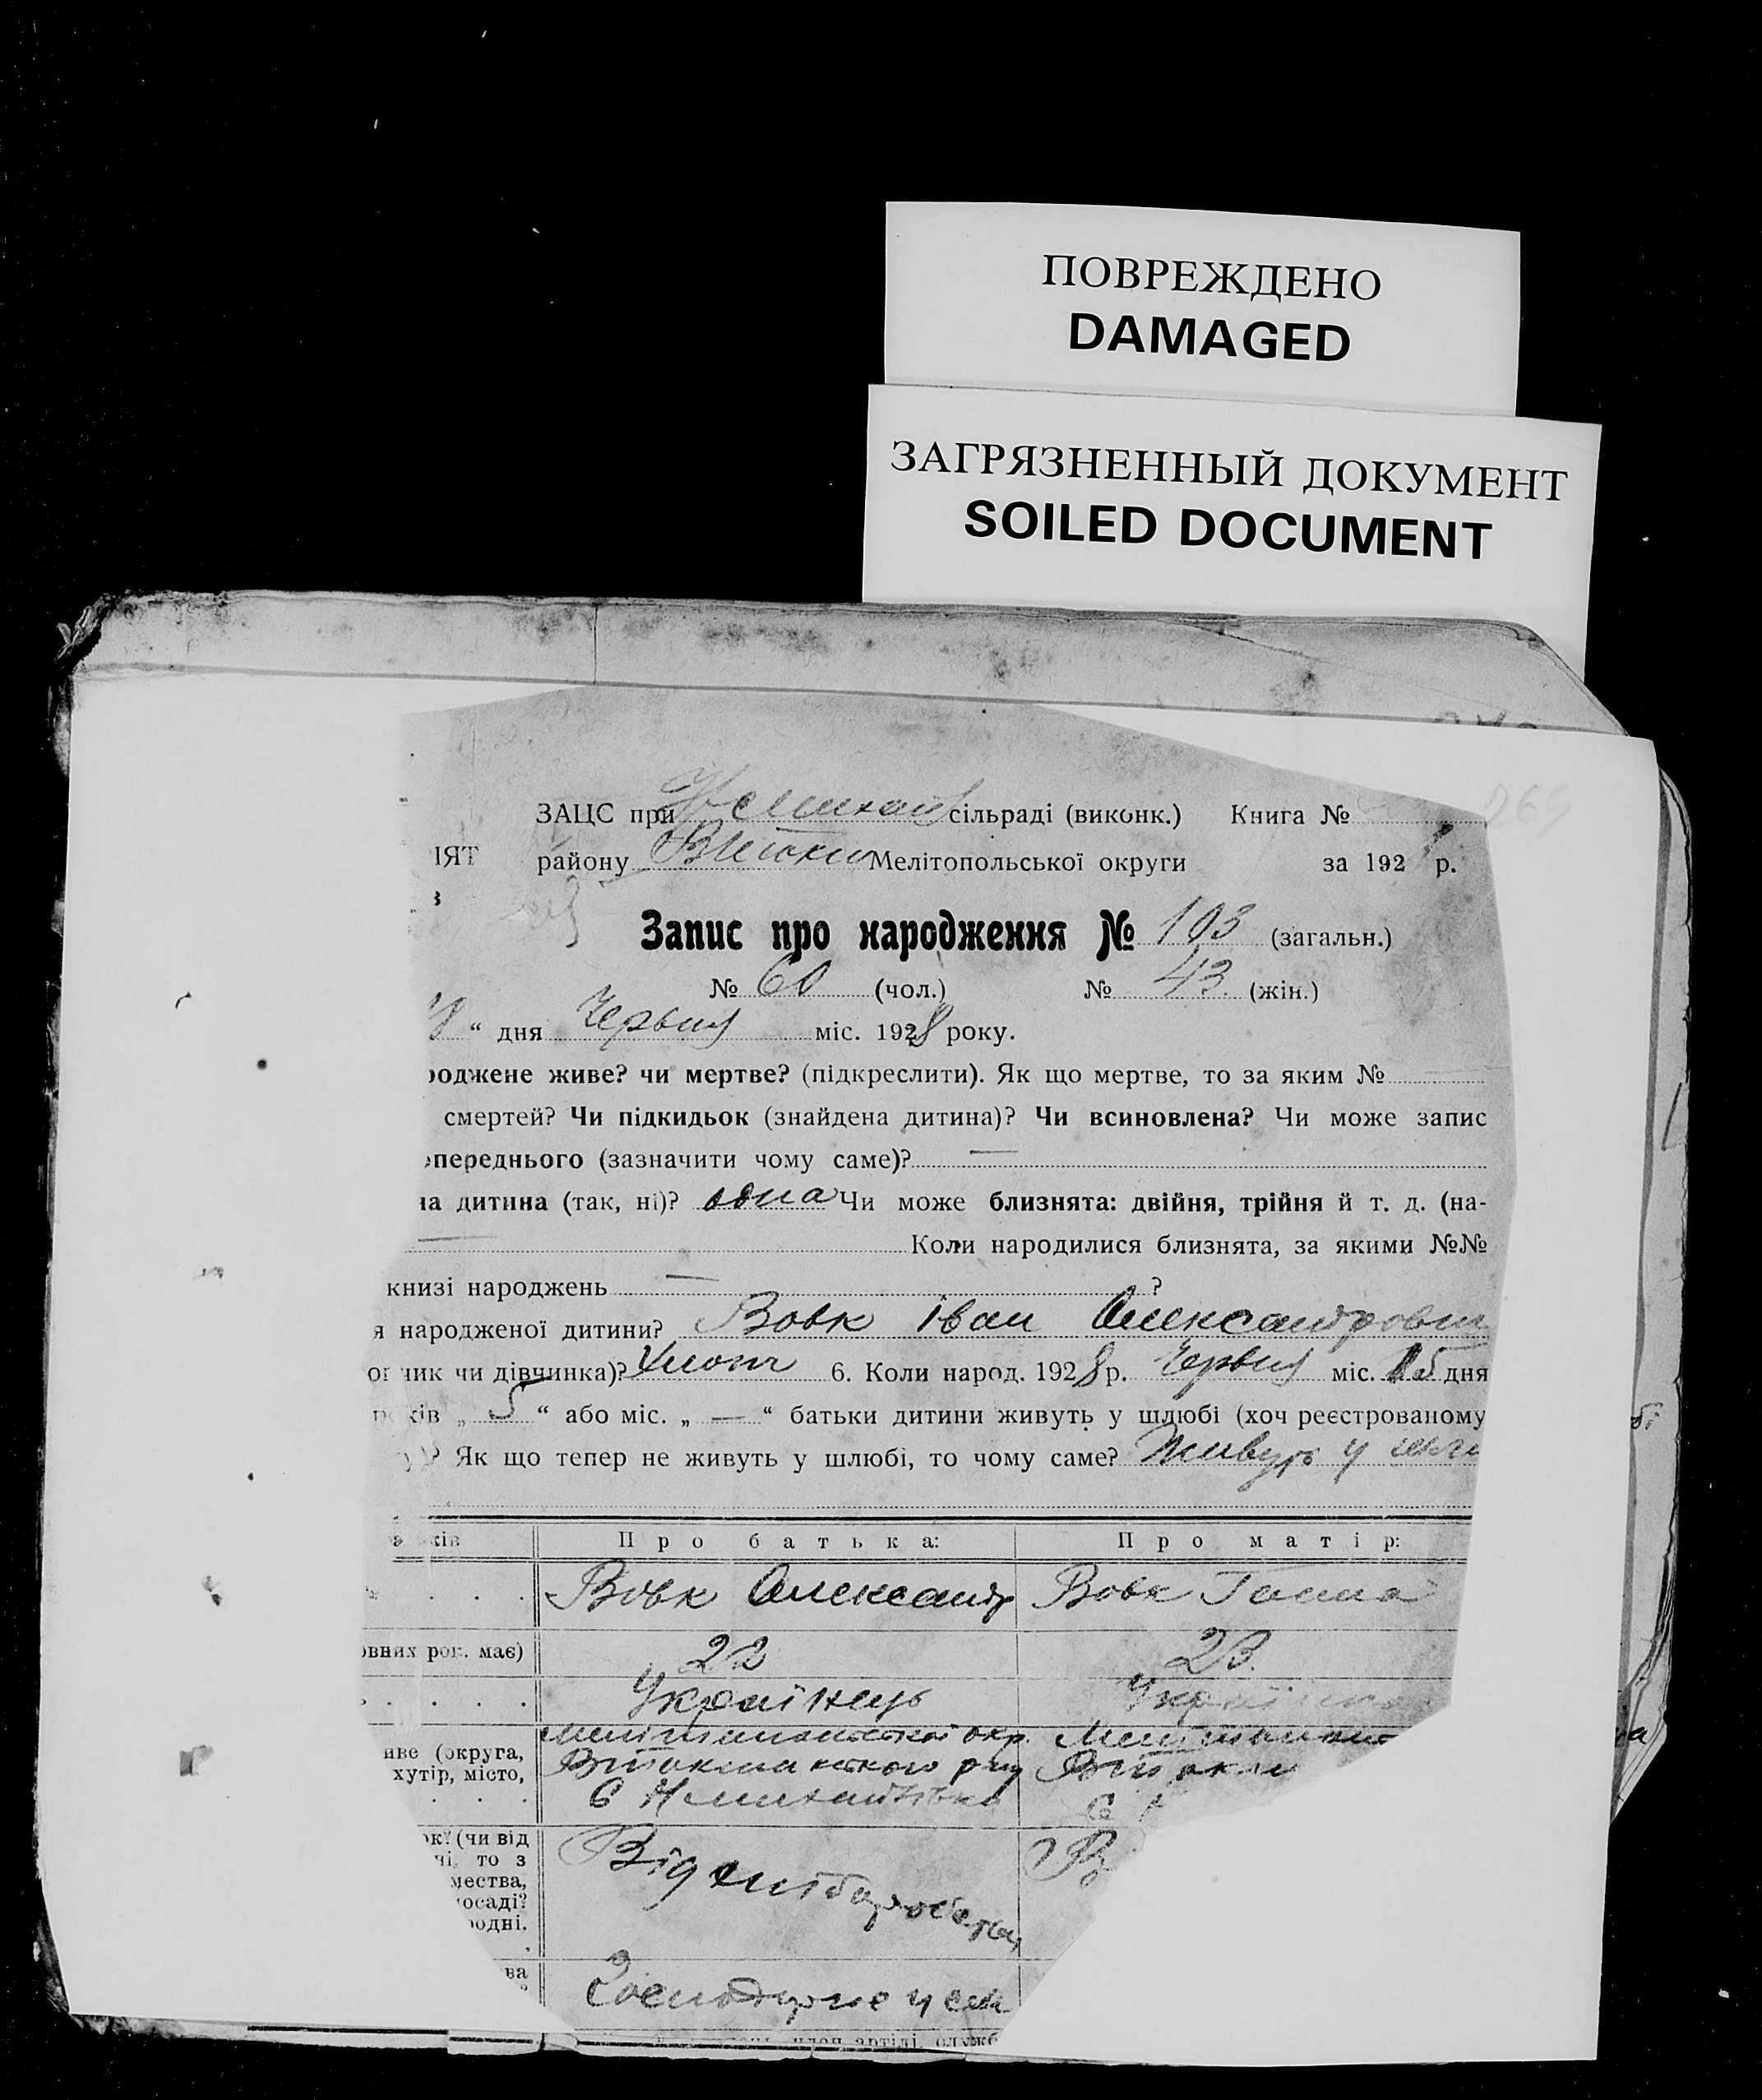 ПОВРЕЖДЕНО
DAMAGED
ЗАГРЯЗНЕННЫЙ ДОКУМЕНТ
SOILED DOCUMENT
269
ЗАЦС при сільраді (виконк.) Книга №
ІЯТ району Мелітопольської округи за 192 р.
Запис про народження № 103 (загальн.)
№ 60 (чол.) № 43 (жін.)
“ дня Червня міс. 1928 року.
роджене живе? чи мертве? (підкреслити). Як що мертве, то за яким №
смертей? Чи підкидьок (знайдена дитина)? Чи всиновлена? Чи може запис
опереднього (зазначити чому саме)? —
на дитина (так, ні)? одна Чи може близнята: двійня, трійня й т. д. (на-
— Коли народилися близнята, за якими №№
книзі народжень — ?
я народженої дитини? Вовк Іван Олександрович
чик чи дівчинка)? Хлопч 6. Коли народ. 1928 р. Червня міс. 15 дня
років „ 5 “ або міс. „ — “ батьки дитини живуть у шлюбі (хоч реєстрованому
у)? Як що тепер не живуть у шлюбі, то чому саме? Живуть у шлю
ків Про батька: Про матір:
Вовк Олександр Вовк Ганна
овних рок. має) 22 23.
Українець Українка
иве (округа, Мелітопольської окр.
хутір, місто,
ок? (чи від
ні, то з
мества,
осаді?
одні.
Від хліборобства
ва
Господарює у селі
член артілі, служб